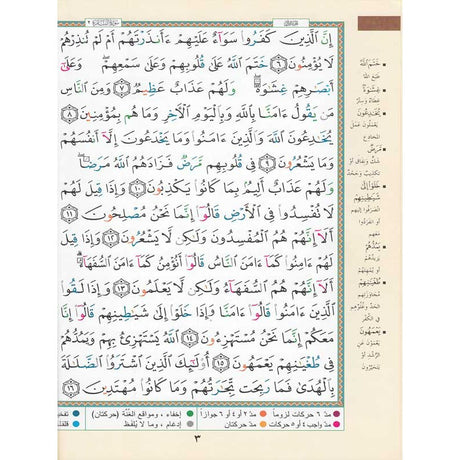 سُورَةُ البَقَرَة ٢
إِنَّ ٱلَّذِينَ كَفَرُوا۟ سَوَآءٌ عَلَيْهِمْ ءَأَنذَرْتَهُمْ أَمْ لَمْ تُنذِرْهُمْ
لَا يُؤْمِنُونَ ٦ خَتَمَ ٱللَّهُ عَلَىٰ قُلُوبِهِمْ وَعَلَىٰ سَمْعِهِمْ وَعَلَىٰٓ
أَبْصَـٰرِهِمْ غِشَـٰوَةٌ وَلَهُمْ عَذَابٌ عَظِيمٌ ٧ وَمِنَ ٱلنَّاسِ
مَن يَقُولُ ءَامَنَّا بِٱللَّهِ وَبِٱلْيَوْمِ ٱلْـَٔاخِرِ وَمَا هُم بِمُؤْمِنِينَ ٨
يُخَـٰدِعُونَ ٱللَّهَ وَٱلَّذِينَ ءَامَنُوا۟ وَمَا يَخْدَعُونَ إِلَّآ أَنفُسَهُمْ
وَمَا يَشْعُرُونَ ٩ فِى قُلُوبِهِم مَّرَضٌ فَزَادَهُمُ ٱللَّهُ مَرَضًا
وَلَهُمْ عَذَابٌ أَلِيمٌۢ بِمَا كَانُوا۟ يَكْذِبُونَ ١٠ وَإِذَا قِيلَ لَهُمْ
لَا تُفْسِدُوا۟ فِى ٱلْأَرْضِ قَالُوٓا۟ إِنَّمَا نَحْنُ مُصْلِحُونَ ١١
أَلَآ إِنَّهُمْ هُمُ ٱلْمُفْسِدُونَ وَلَـٰكِن لَّا يَشْعُرُونَ ١٢ وَإِذَا قِيلَ
لَهُمْ ءَامِنُوا۟ كَمَآ ءَامَنَ ٱلنَّاسُ قَالُوٓا۟ أَنُؤْمِنُ كَمَآ ءَامَنَ ٱلسُّفَهَآءُ
أَلَآ إِنَّهُمْ هُمُ ٱلسُّفَهَآءُ وَلَـٰكِن لَّا يَعْلَمُونَ ١٣ وَإِذَا لَقُوا۟
ٱلَّذِينَ ءَامَنُوا۟ قَالُوٓا۟ ءَامَنَّا وَإِذَا خَلَوْا۟ إِلَىٰ شَيَـٰطِينِهِمْ قَالُوٓا۟ إِنَّا
مَعَكُمْ إِنَّمَا نَحْنُ مُسْتَهْزِءُونَ ١٤ ٱللَّهُ يَسْتَهْزِئُ بِهِمْ وَيَمُدُّهُمْ
فِى طُغْيَـٰنِهِمْ يَعْمَهُونَ ١٥ أُو۟لَـٰٓئِكَ ٱلَّذِينَ ٱشْتَرَوُا۟ ٱلضَّلَـٰلَةَ
بِٱلْهُدَىٰ فَمَا رَبِحَت تِّجَـٰرَتُهُمْ وَمَا كَانُوا۟ مُهْتَدِينَ ١٦
خَتَمَ اللَّهُ
طَبَعَ اللهُ
غِشَاوَةٌ
غطاءٌ وسترٌ
يُخَادِعُونَ
يعملون عمل
المخادع
مَرَضٌ
شكٌّ ونفاق أو
تكذيب وجحد
خَلَوْا إِلَى
شَيَاطِينِهِمْ
انصرفوا إليهم
أو انفردوا
معهم
يَمُدُّهُمْ
يزيدهم
أو يمهلهم
طُغْيَانِهِمْ
مجاوزتهم
الحدّ وغلوّهم
في الكفر
يَعْمَهُونَ
يعمون عن
الرشد أو
يتحيرون
مدّ ٦ حركات لزوماً مدّ ٢ أو ٤ أو ٦ جوازاً إخفاء، ومواقع الغُنَّة (حركتان)
مدّ واجب ٤ أو ٥ حركات مدّ حركتان إدغام، وما لا يُلفَظ
٣